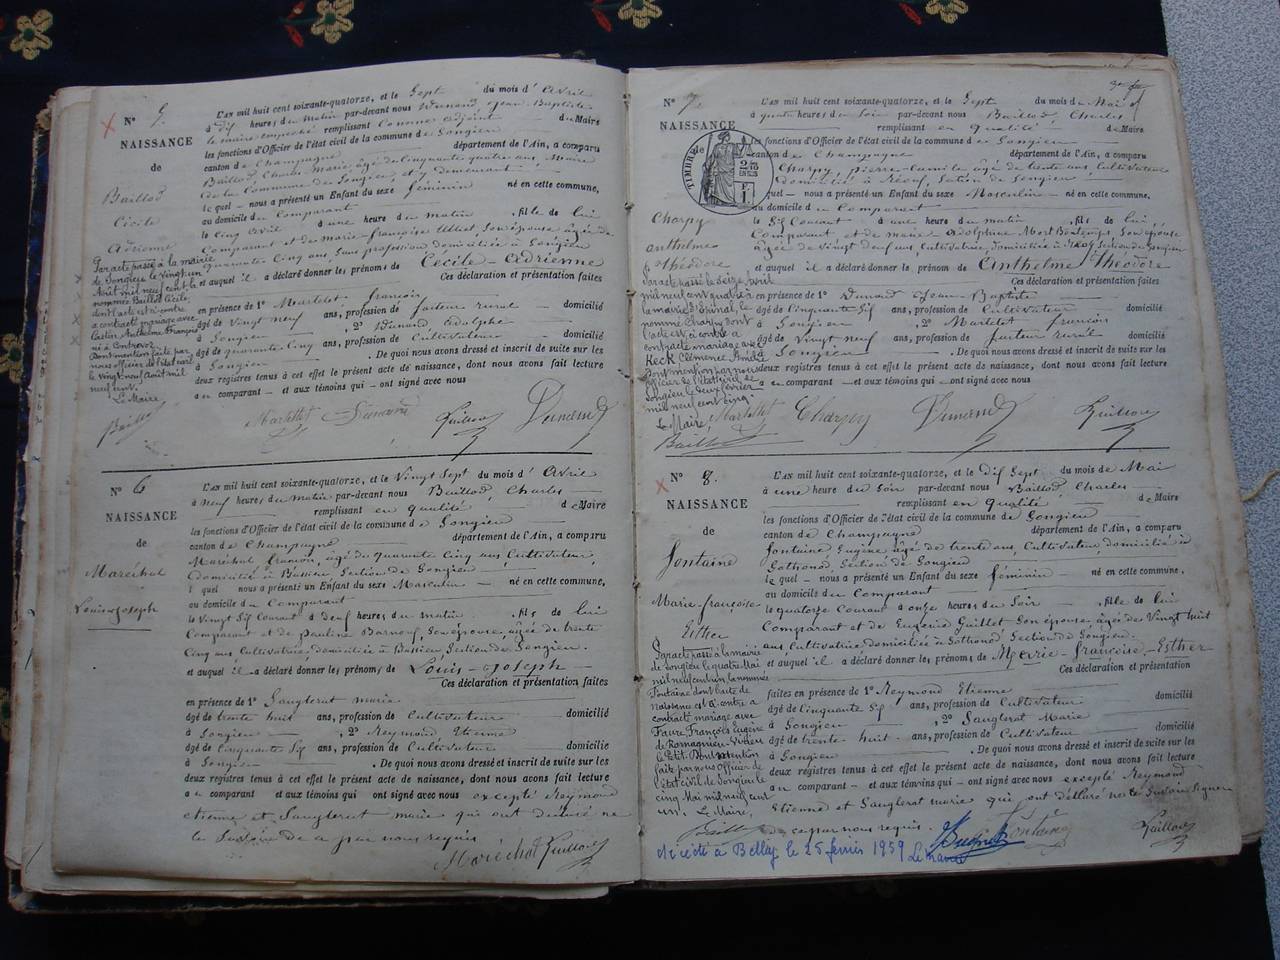 N° 5.
NAISSANCE
de
Baillod
Cécile
Adrienne
Par acte passé à la mairie
de Songieu le vingt un
Août mil neuf cent
nommée Baillod Cécile,
dont l'acte est ci-contre
a contracté mariage avec
Anthelme François
né à Contrevoz
Dont mention faite par
nous officier de l'état civil
le vingt neuf Août mil
neuf cent.
Le Maire,
L'AN mil huit cent soixante-quatorze, et le Sept du mois d'Avril
à dix heures du matin par-devant nous Dunand, Jean Baptiste
le maire empêché remplissant comme adjoint du Maire
les fonctions d'Officier de l'état civil de la commune de Songieu
canton de Champagne département de l'Ain, a comparu
Baillod Charles Marie, âgé de cinquante quatre ans, Maire
de la Commune de Songieu et y demeurant
le quel — nous a présenté un Enfant du sexe féminin né en cette commune,
au domicile du Comparant
le cinq Avril à une heure du matin, fille de lui
Comparant et de marie françoise son épouse âgée de
quarante cinq ans, Sans profession domiciliée à Songieu
et auquel il a déclaré donner les prénoms de Cécile-Adrienne
Ces déclaration et présentation faites
en présence de 1° Martelet françois domicilié
âgé de vingt neuf ans, profession de facteur rural
à Songieu, 2° Dunand Adolphe domicilié
âgé de quarante cinq ans, profession de Cultivateur
à Songieu. De quoi nous avons dressé et inscrit de suite sur les
deux registres tenus à cet effet le présent acte de naissance, dont nous avons fait lecture
au comparant et aux témoins qui — ont signé avec nous
Baillod Martelet Dunand Guillon Dunand
N° 6
NAISSANCE
de
Maréchal
Louis Joseph
L'AN mil huit cent soixante-quatorze, et le Vingt Sept du mois d'Avril
à neuf heures du matin par-devant nous Baillod, Charles
remplissant en qualité de Maire
les fonctions d'Officier de l'état civil de la commune de Songieu
canton de Champagne département de l'Ain, a comparu
Maréchal françois, âgé de quarante cinq ans, Cultivateur,
domicilié à Bassieu Section de Songieu
le quel nous a présenté un Enfant du sexe Masculin — né en cette commune,
au domicile du Comparant
le Vingt Six Courant à Neuf heures du matin, fils de lui
Comparant et de Pauline son épouse, âgée de trente
Cinq ans Cultivatrice, domiciliée à Bassieu, Section de Songieu.
et auquel il a déclaré donner les prénoms de Louis-Joseph
Ces déclaration et présentation faites
en présence de 1° Sanglerat marie
âgé de trente huit ans, profession de Cultivateur domicilié
à Songieu, 2° Reymond Etienne
âgé de cinquante Six ans, profession de Cultivateur domicilié
à Songieu. De quoi nous avons dressé et inscrit de suite sur les
deux registres tenus à cet effet le présent acte de naissance, dont nous avons fait lecture
au comparant et aux témoins qui ont signé avec nous excepté Reymond
etienne et Sanglerat marie qui ont déclaré ne
le Savoir de ce par nous requis
Maréchal Guillon
N° 7.
NAISSANCE
de
TIMBRE
Charpy
anthelme
Théodore
Par acte passé le Seize Avril
mil neuf cent quatre à
la mairie d'Epinal, le
nommé Charpy dont
l'acte est ci contre a
contracté mariage avec
Keck Clémence Amélie
Dont mention par nous
officier de l'état civil de
Songieu le deux février
mil neuf cent cinq.
Le Maire,
L'AN mil huit cent soixante-quatorze, et le Sept du mois de Mai
à quatre heures du soir par-devant nous Baillod, Charles
remplissant en qualité de Maire
les fonctions d'Officier de l'état civil de la commune de Songieu
canton de Champagne département de l'Ain, a comparu
Charpy, Pierre-Camille âgé de trente ans, Cultivateur
domicilié à Section de Songieu
le quel — nous a présenté un Enfant du sexe Masculin — né en cette commune,
au domicile du Comparant
le Six Courant à une heure du matin, fils de lui
Comparant et de marie Adolphine Mort Bontemps, Son épouse
âgée de Vingt Neuf ans, Cultivatrice, domiciliée à Section de Songieu
et auquel il a déclaré donner le prénom de Anthelme Théodore
Ces déclaration et présentation faites
en présence de 1° Dunand Jean-Baptiste
âgé de Cinquante Six ans, profession de Cultivateur domicilié
à Songieu, 2° Martelet françois
âgé de vingt neuf ans, profession de facteur rural domicilié
à Songieu. De quoi nous avons dressé et inscrit de suite sur les
deux registres tenus à cet effet le présent acte de naissance, dont nous avons fait lecture
au comparant — et aux témoins qui — ont signé avec nous
Baillod Martelet Charpy Dunand Guillon
N° 8.
NAISSANCE
de
Fontaine
Marie-françoise
Esther
Par acte passé à la mairie
de Songieu le quatre Mai
mil neuf cent un, la nommée
Fontaine dont l'acte de
naissance est ci-contre a
contracté mariage avec
Favre François Eugène
de Romagnieu-Virieu
le Petit. Dont mention
faite par nous Officier de
l'état civil de Songieu le
cinq Mai mil neuf cent
un. Le Maire,
L'AN mil huit cent soixante-quatorze, et le Dix Sept du mois de Mai
à une heure du Soir par-devant nous Baillod, Charles
remplissant en qualité de Maire
les fonctions d'Officier de l'état civil de la commune de Songieu
canton de Champagne département de l'Ain, a comparu
fontaine Eugène âgé de trente ans, Cultivateur, domicilié à
Gothonod, Section de Songieu
le quel — nous a présenté un Enfant du sexe féminin — né en cette commune,
au domicile du Comparant
le quatorze Courant à onze heures du Soir, fille de lui
Comparant et de Eugénie Guillet Son épouse, âgée de Vingt huit
ans, Cultivatrice, domiciliée à Gothonod Section de Songieu.
et auquel il a déclaré donner les prénoms de Marie-françoise-Esther
Ces déclaration et présentation
faites en présence de 1° Reymond Etienne
âgé de Cinquante Six ans, profession de Cultivateur domicilié
à Songieu, 2° Sanglerat Marie
âgé de trente huit ans, profession de Cultivateur domicilié
à Songieu. De quoi nous avons dressé et inscrit de suite sur les
deux registres tenus à cet effet le présent acte de naissance, dont nous avons fait lecture
au comparant — et aux témoins qui — ont signé avec nous excepté Reymond
Etienne et Sanglerat marie qui ont déclaré ne le Savoir Signer
de ce par nous requis.
Baillod Fontaine Guillon
décédée à Belley le 25 février 1959 Le Maire